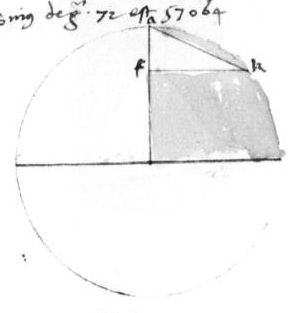 sinus de gr. 72 est 57064
a
f k